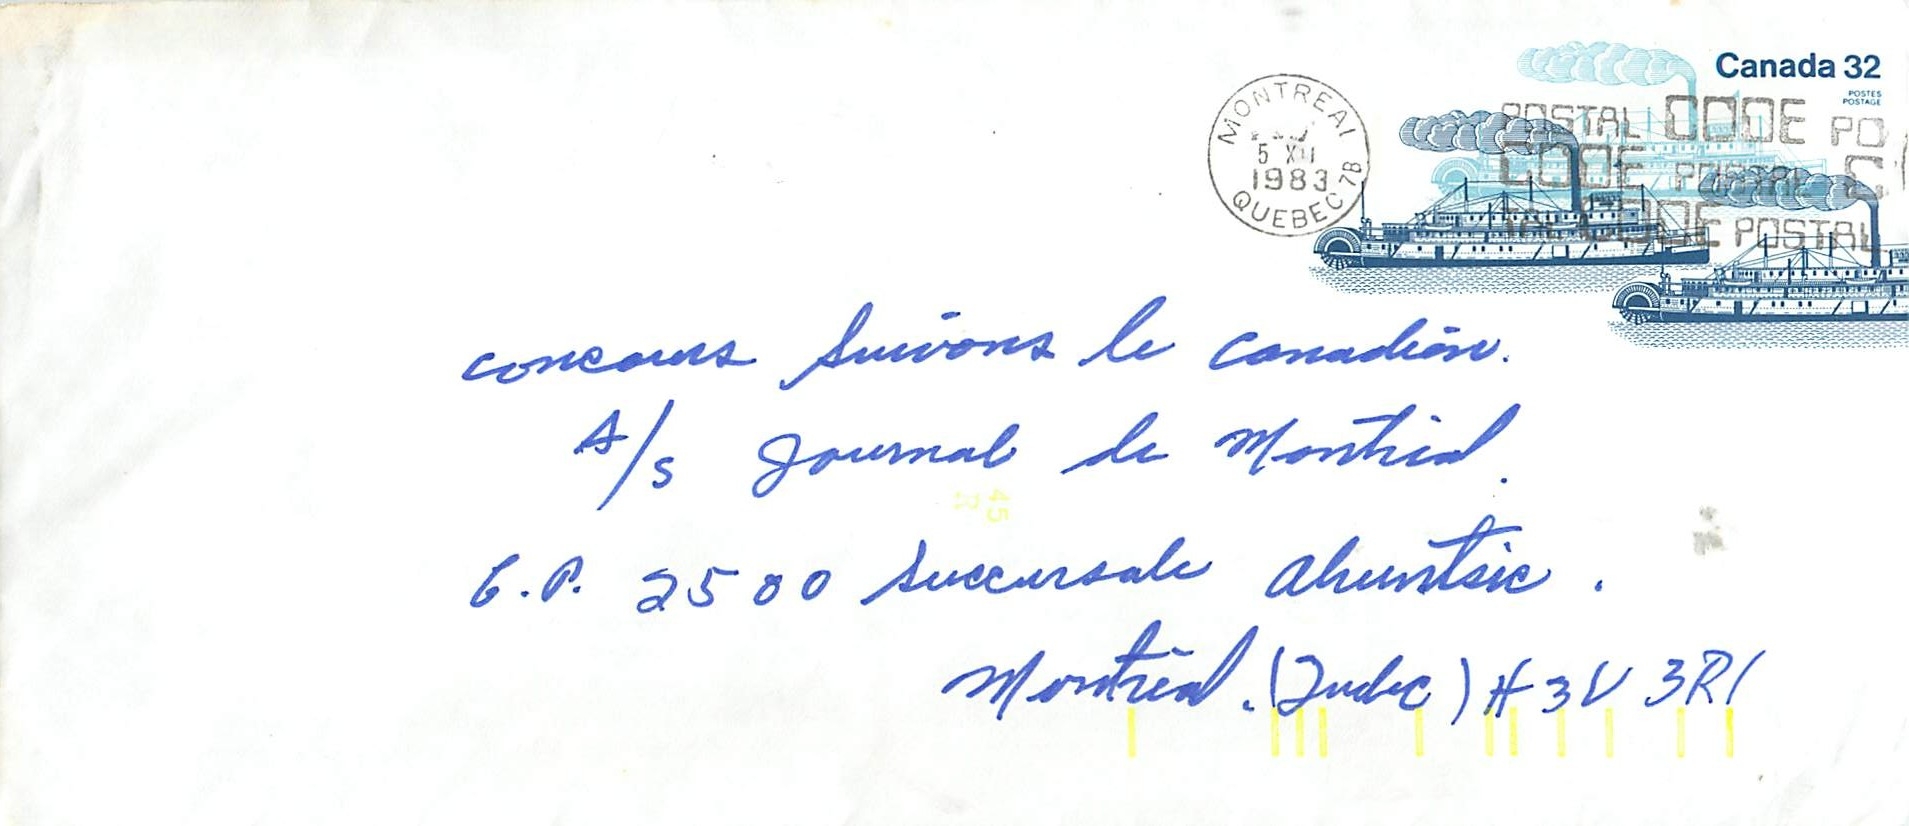 Canada 32
POSTES
POSTAGE
MONTREAL
5 XII
1983
QUEBEC 7B
POSTAL CODE PO
CODE POSTAL C
TAL CODE POSTAL
concours Suivons le Canadien.
A/S Journal de Montréal.
C.P. 2500 Succursale Ahuntsic.
Montréal. (Québec) H3V 3R1
45
R